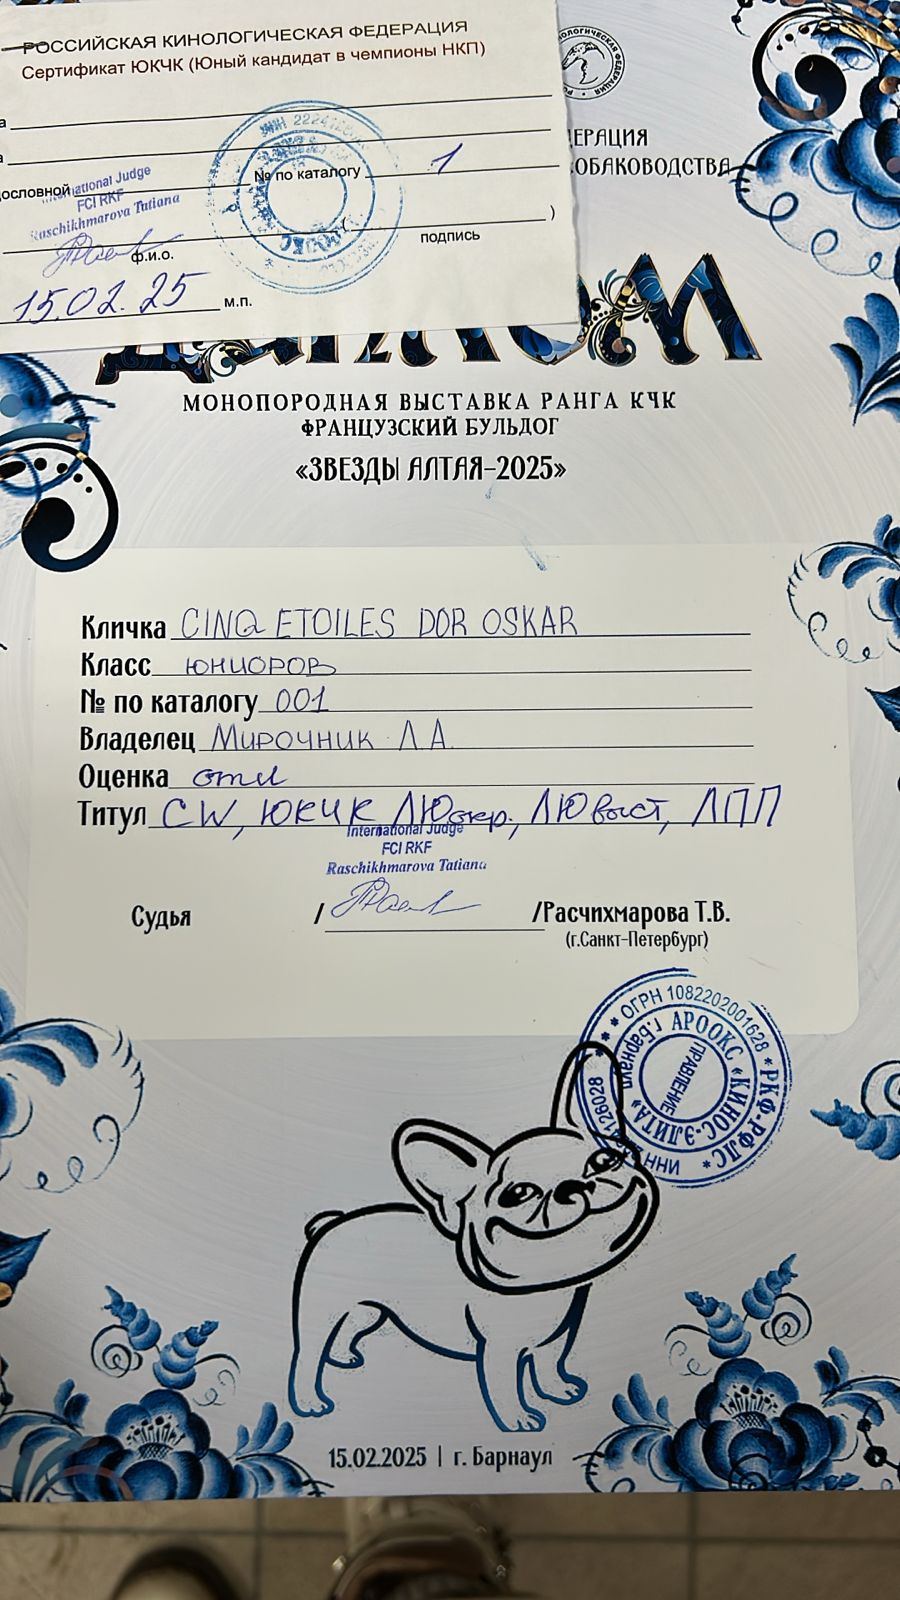 РОССИЙСКАЯ КИНОЛОГИЧЕСКАЯ ФЕДЕРАЦИЯ
Сертификат ЮКЧК (Юный кандидат в чемпионы НКП)
№ по каталогу 1
International Judge
FCI RKF
Raschikhmarova Tatiana
подпись
ф.и.о.
15.02.25 м.п.
ЕРАЦИЯ
ОБАКОВОДСТВА
ДИПЛОМ
МОНОПОРОДНАЯ ВЫСТАВКА РАНГА КЧК
ФРАНЦУЗСКИЙ БУЛЬДОГ
«ЗВЕЗДЫ АЛТАЯ-2025»
Кличка CINQ ETOILES DOR OSKAR
Класс юниоров
№ по каталогу 001
Владелец Мирочник Л.А.
Оценка отл
Титул CW, ЮКЧК ЛЮокр., ЛЮвыст, ЛПП
International Judge
FCI RKF
Raschikhmarova Tatiana
Судья / /Расчихмарова Т.В.
(г.Санкт-Петербург)
ОГРН 1082202001628 * РКФ-РФЛС*
АРООКС «КИНОС-ЭЛИТА» г. Барнаул
ПРАВЛЕНИЕ
15.02.2025 | г. Барнаул